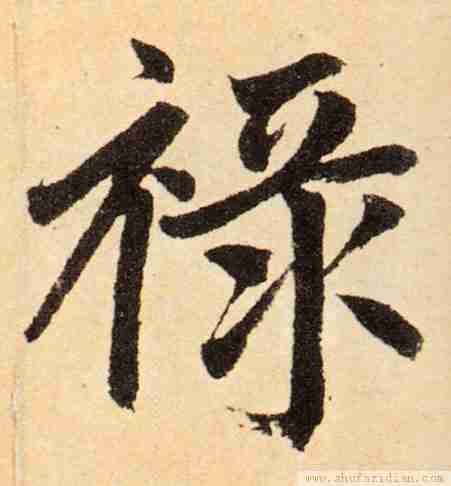 禄
www.shufazidian.com